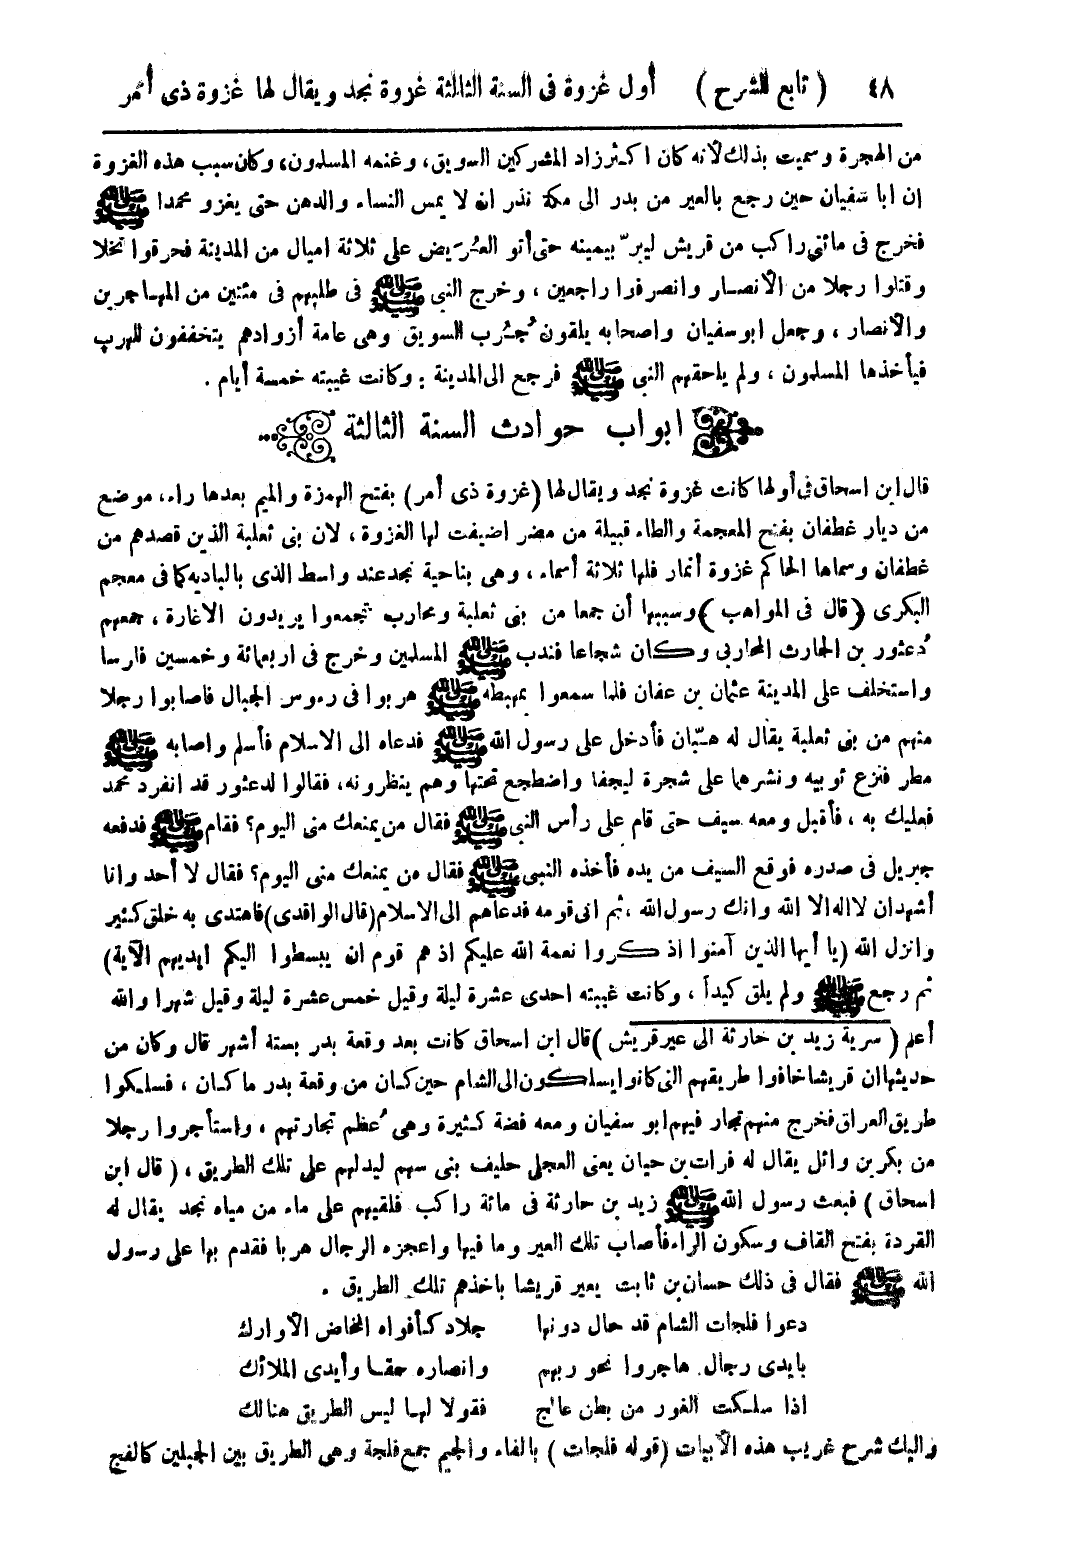 ٤٨ ( تابع للشرح ) أول غزوة فى السنة الثالثة غزوة نجد ويقال لها غزوة ذى أمر
من الهجرة وسميت بذلك لأنه كان اكثر زاد المشركين السويق، وغنمه المسلمون، وكان سبب هذه الغزوة
إن ابا سفيان حين رجع بالعير من بدر الى مكة نذر ان لا يمس النساء والدهن حتى يغزو محمدا ﷺ
فخرج فى مائتي راكب من قريش ليبرّ بيمينه حتى أتو العُرَيض على ثلاثة اميال من المدينة فحرقوا نخلا
وقتلوا رجلا من الأنصار وانصرفوا راجعين ، وخرج النبى ﷺ فى طلبهم فى مئتين من المهاجرين
والأنصار ، وجعل ابو سفيان واصحابه يلقون جُرُب السويق وهى عامة أزوادهم يتخففون للهرب
فيأخذها المسلمون ، ولم يلحقهم النبى ﷺ فرجع الى المدينة : وكانت غيبته خمسة أيام .
ابواب حوادث السنة الثالثة
قال ابن اسحاق فى أولها كانت غزوة نجد ويقال لها (غزوة ذى أمر) بفتح الهمزة والميم بعدها راء، موضع
من ديار غطفان بفتح المعجمة والطاء قبيلة من مضر اضيفت لها الغزوة ، لان بنى ثعلبة الذين قصدهم من
غطفان وسماها الحاكم غزوة أنمار فلها ثلاثة أسماء ، وهى بناحية نجد عند واسط الذى بالباديه كما فى معجم
البكرى (قال فى المواهب) وسببها أن جمعا من بنى ثعلبة ومحارب تجمعوا يريدون الاغارة ، جمعهم
دُعثور بن الحارث المحاربى وكان شجاعا فندب ﷺ المسلمين وخرج فى اربعمائة وخمسين فارسا
واستخلف على المدينة عثمان بن عفان فلما سمعوا بمهبطه ﷺ هربوا فى رءوس الجبال فاصابوا رجلا
منهم من بنى ثعلبة يقال له حبّان فأدخل على رسول الله ﷺ فدعاه الى الاسلام فأسلم واصابه ﷺ
مطر فنزع ثوبيه ونشرهما على شجرة ليجفا واضطجع تحتها وهم ينظرونه، فقالوا لدعثور قد انفرد محمد
فعليك به ، فأقبل ومعه سيف حتى قام على رأس النبى ﷺ فقال من يمنعك منى اليوم؟ فقام ﷺ فدفعه
جبريل فى صدره فوقع السيف من يده فأخذه النبى ﷺ فقال من يمنعك منى اليوم؟ فقال لا أحد وانا
أشهد ان لا اله الا الله وانك رسول الله ، ثم اتى قومه فدعاهم الى الاسلام (قال الواقدى) فاهتدى به خلق كثير
وانزل الله (يا أيها الذين آمنوا اذكروا نعمة الله عليكم اذ هم قوم ان يبسطوا اليكم ايديهم الآية)
ثم رجع ﷺ ولم يلق كيداً ، وكانت غيبته احدى عشرة ليلة وقيل خمس عشرة ليلة وقيل شهرا والله
أعلم ( سرية زيد بن حارثة الى عير قريش ) قال ابن اسحاق كانت بعد وقعة بدر بستة أشهر قال وكان من
حديثها ان قريشا خافوا طريقهم التى كانوا يسلكون الى الشام حين كان من وقعة بدر ما كان ، فسلكوا
طريق العراق فخرج منهم تجار فيهم ابو سفيان ومعه فضة كثيرة وهى عُظم تجارتهم ، واستأجروا رجلا
من بكر بن وائل يقال له فرات بن حيان يعنى العجلى حليف بنى سهم ليدلهم على تلك الطريق ، ( قال ابن
اسحاق ) فبعث رسول الله ﷺ زيد بن حارثة فى مائة راكب فلقيهم على ماء من مياه نجد يقال له
القردة بفتح القاف وسكون الراء فأصاب تلك العير وما فيها واعجزه الرجال هربا فقدم بها على رسول
الله ﷺ فقال فى ذلك حسان بن ثابت يعير قريشا باخذهم تلك الطريق .
دعوا فلجات الشام قد حال دونها جلاد كأفواه المخاض الأوارك
بايدى رجال هاجروا نحو ربهم وانصاره حقا وأيدى الملائك
اذا سلكت الغور من بطن عالج فقولا لها ليس الطريق هنالك
واليك شرح غريب هذه الأبيات (قوله فلجات ) بالفاء والجيم جمع فلجة وهى الطريق بين الجبلين كالفج